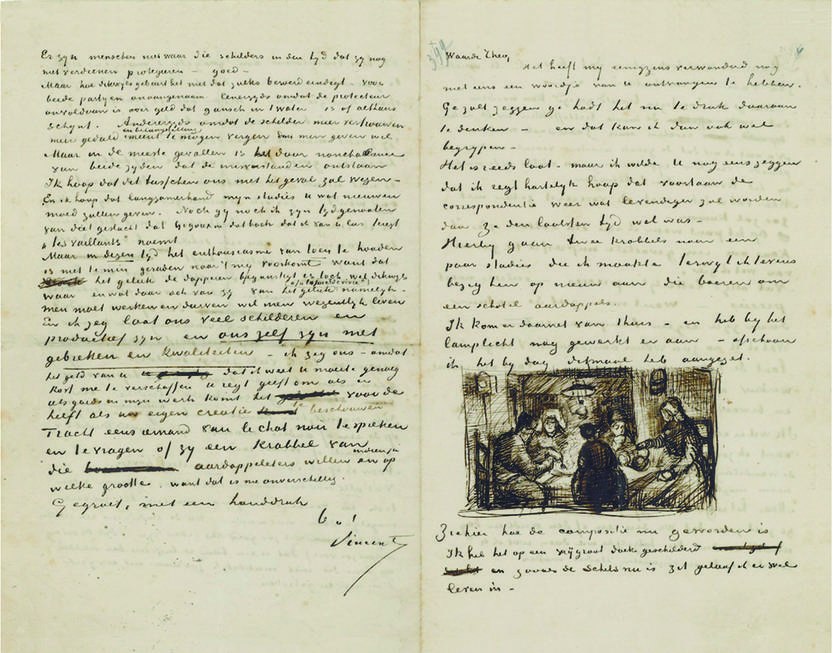 Er zyn menschen niet waar die schilders in den tyd dat zy nog
niet verdienen protegeeren – goed –
Maar hoe dikwyls gebeurt het niet dat zulks beroerd eindigt – voor
beide partyen onaangenaam Eenerzyds omdat de protecteur
onvoldaan is over geld dat gansch in t water is of althans
schynt. Anderzyds omdat de schilder meer vertrouwen
meer geduld en belangstelling meent te mogen vergen dan men geven wil
Maar in de meeste gevallen is het door nonchalance
van beide zyden dat de misverstanden ontstaan
Ik hoop dat dit tusschen ons niet het geval zal wezen –
En ik hoop dat langzamerhand myn studies u wat nieuwen
moed zullen geven. Noch gy noch ik zyn tydgenooten
van diet geslacht dat Gigoux in dat boek dat ik van u las terecht
"les Vaillants" noemt
Maar in dezen tyd het enthousiasme van toen te houden
is niet te min geraden naar 't my voorkomt want dat
het geluk de dapperen begunstigt is toch wel dikwyls
waar en wat daar ook van zy van het geluk (of la 'joie(?) de vivre') namelyk –
men moet werken en durven wil men wezentlyk leven
En ik zeg laat ons veel schilderen en
productief zyn en ons zelf zyn met
gebreken en kwaliteiten – ik zeg ons – omdat
het geld van u dat ik weet u moeite genoeg
kost me te verschaffen u regt geeft om als er
iets goeds in myn werk komt het voor de
helft als uw eigen creatie te beschouwen
Tracht eens iemand van le chat noir te spreken
en te vragen of zy een krabbel van
die aardappeleters willen en indien ja op
welke grootte. want dat is me onverschillig.
Gegroet, met een handdruk
t. à t.
Vincent
Waarde Theo,
Het heeft my eenigzins verwonderd nog
niet eens een woordje van u ontvangen te hebben.
Ge zult zeggen ge hadt het nu te druk daaraan
te denken – en dat kan ik dan ook wel
begrypen –
Het is reeds laat – maar ik wilde u nog eens zeggen
dat ik regt hartelyk hoop dat voortaan de
correspondentie weer wat levendiger zal worden
dan ze den laatsten tyd wel was –
Hierby gaan twee krabbels naar een
paar studies die ik maakte terwyl ik tevens
bezig ben op nieuw aan die boeren om
een schotel aardappels.
Ik kom er daarnet van thuis – en heb by het
lamplicht nog gewerkt er aan – ofschoon
ik het by dag ditmaal heb aangezet.
Ziehier hoe de compositie nu geworden is
Ik heb het op een vry groot doek geschilderd
en zooals de schets nu is zit geloof ik er wel
leven in –